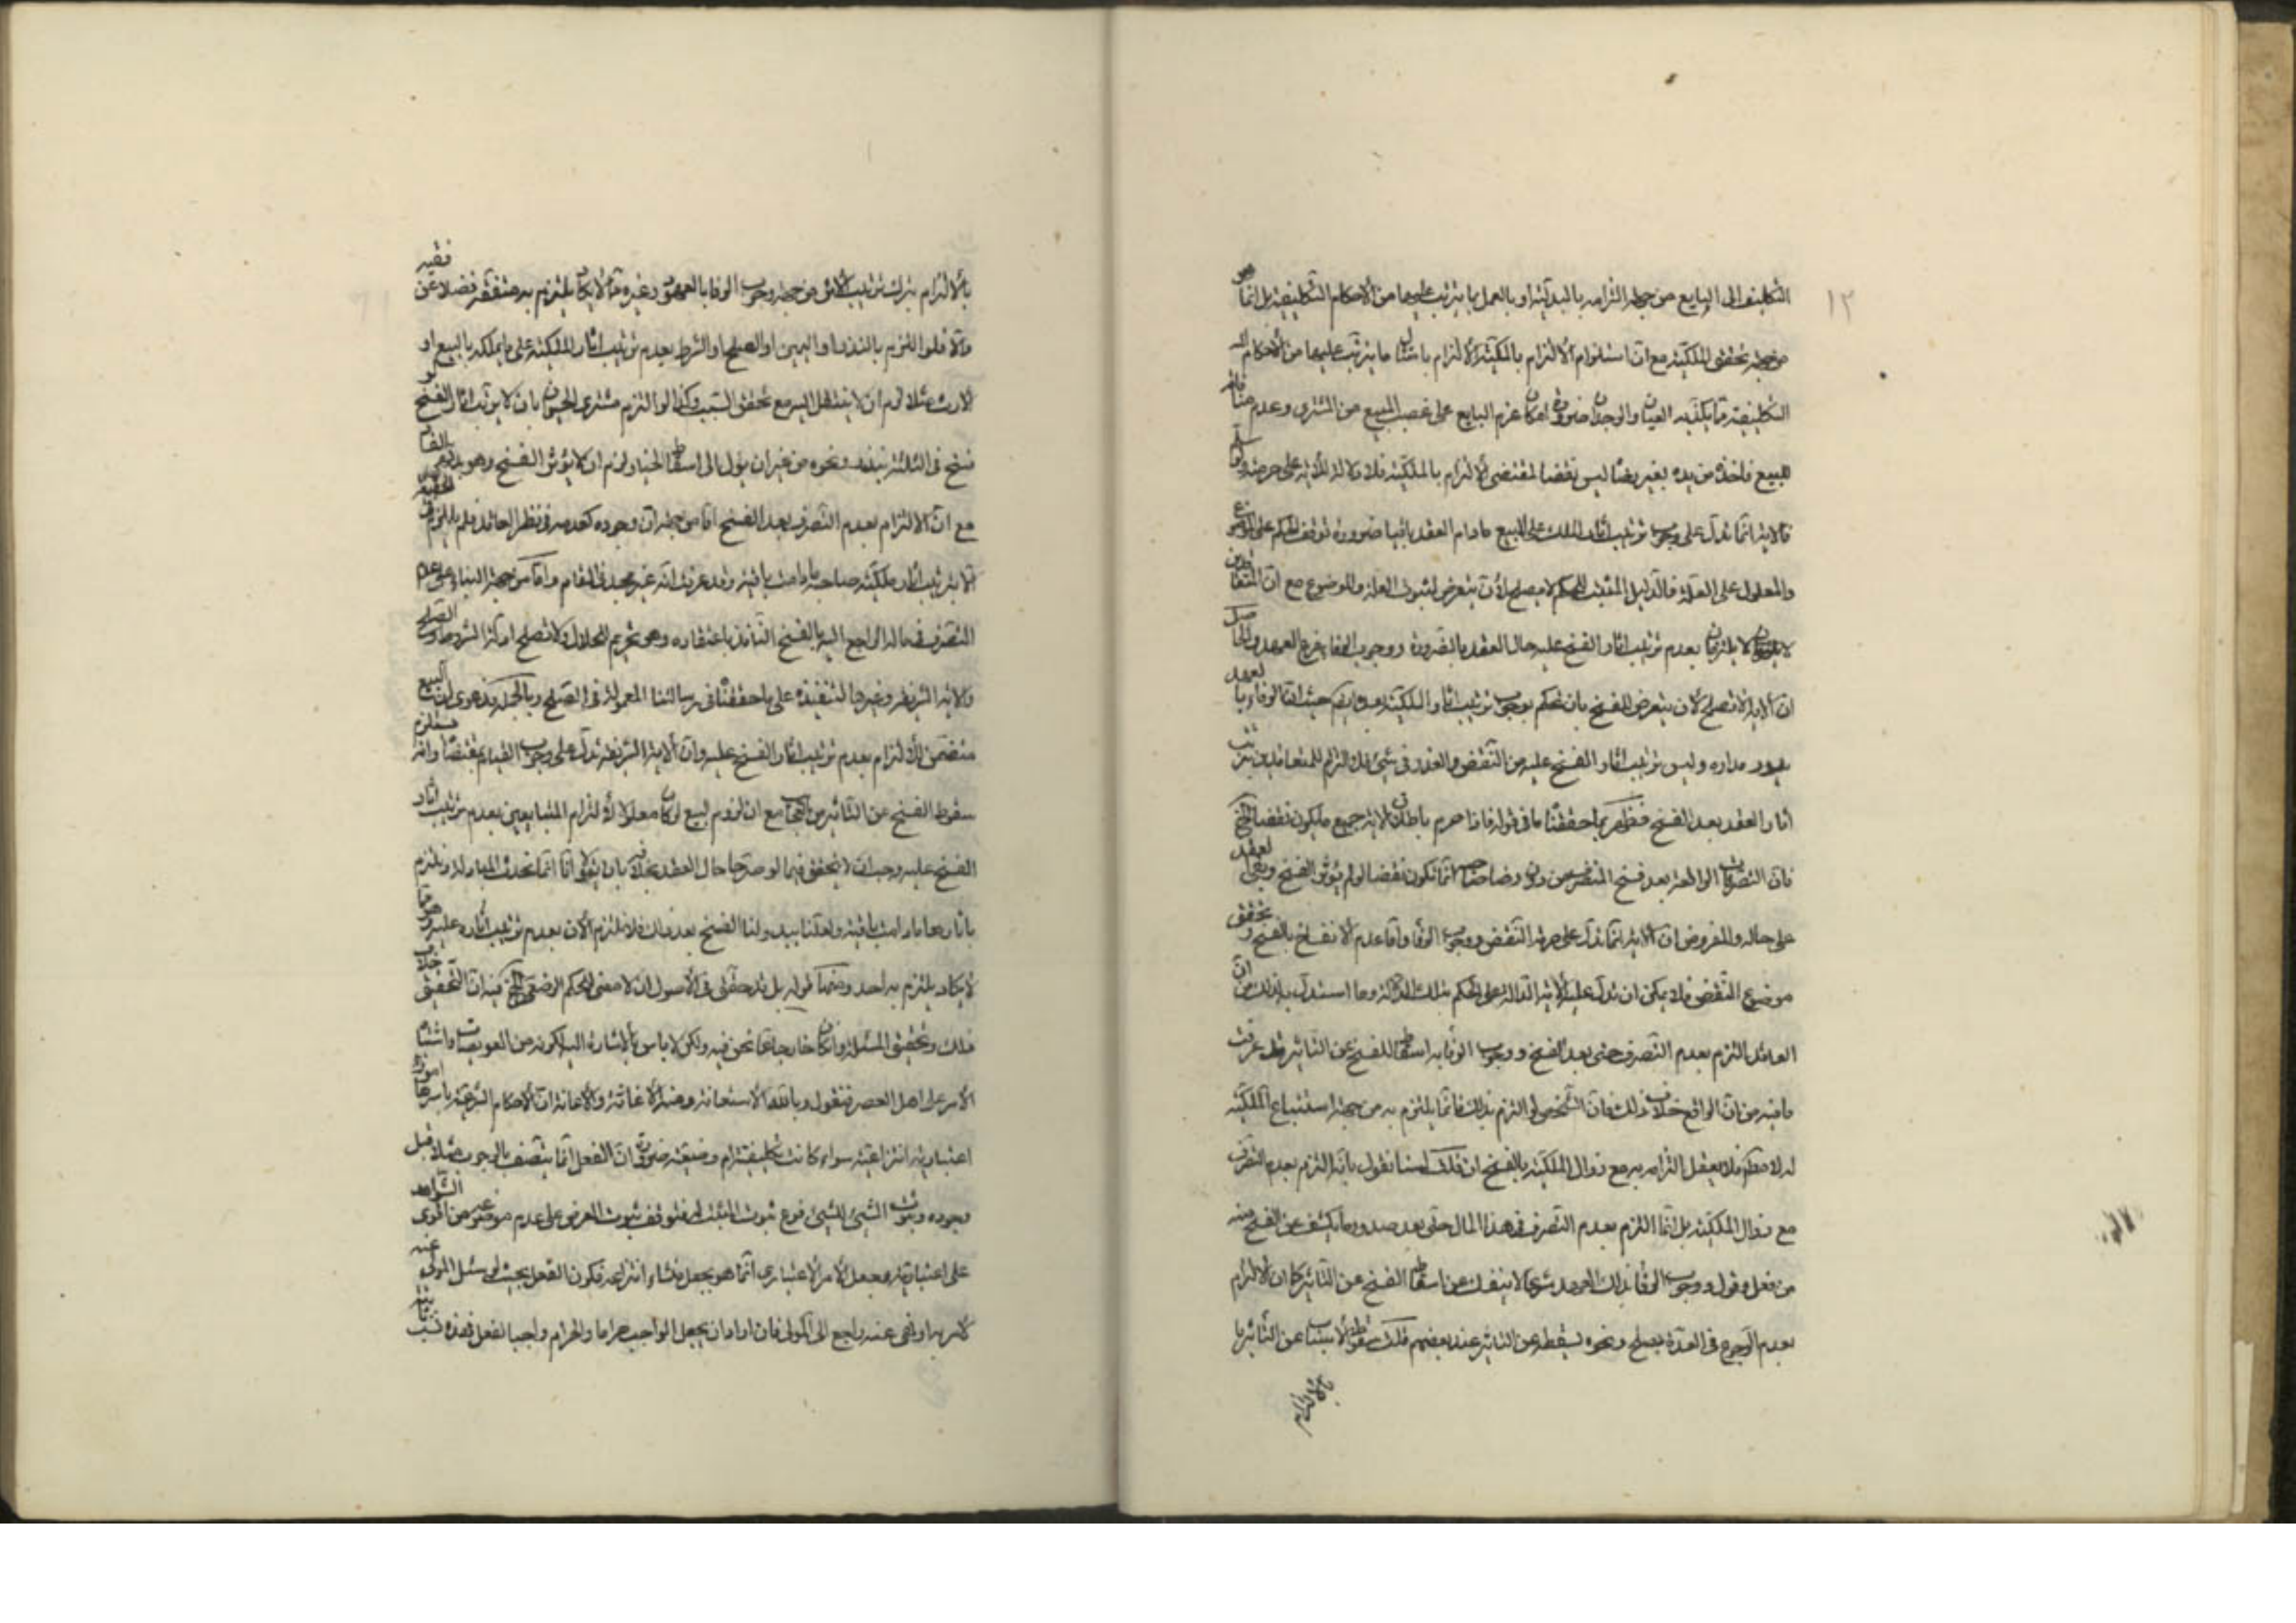 ١٢
التكليف الى البايع من جهة التزامه بالبدلية او بالعمل بما يترتب عليها من الأحكام التكليفية بل انما هو
من جهة تحقق الملكية مع ان استلزام الالتزام بالملكية الالتزام بامتثال ما يترتب عليها من الأحكام
التكليفية مما يكذبه العيان والوجدان ضرورة امكان عزم البايع على غصب المبيع من المشتري وعدم
للمبيع فاخذه من يده بغير رضاه ليس نقضا لمقتضى الالتزام بالملكية فلا دلالة للآية على حرمته
فالاية انما تدل على وجوب ترتيب اثار الملك على المبيع ما دام العقد باقيا ضرورة توقف الحكم على الموضوع
والمعلول على العلة فالدليل المثبت للحكم لا يصلح لأن يتعرض لثبوت العلة والموضوع مع ان المتعاقدين
لا يلتزمان بعدم ترتيب اثار الفسخ عليه حال العقد بالضرورة ووجوب الوفاء فرع العهد والحاصل
ان الاية لا تصلح لان يتعرض للفسخ بان تحكم بوجوب ترتيب اثار الملكية بعده حيث ان الوفاء بالعهد
يدور مداره وليس ترتيب اثار الفسخ عليه من النقض والغدر في شيء لعدم التزام المتعاقدين بترتيب
اثار العقد بعد الفسخ فظهر بما حققنا ما في قوله فاذا حرم باطلاق الاية جميع ما يكون نقضا الخ
فان التصرفات الواقعة بعد فسخ المتصرف من دون رضا صاحبه انما تكون نقضا لو لم يؤثر الفسخ وبقي العقد
على حاله والمفروض ان الاية انما تدل على حرمة النقض ووجوب الوفاء واما عدم الانفساخ بالفسخ وتحقق
موضوع النقض فلا يمكن ان تدل عليه الاية الدالة على الحكم بتلك الدلالة وما استدل به لذلك من ان
العاقد التزم بعدم التصرف حتى بعد الفسخ ووجوب الوفاء به اسقاط للفسخ عن التأثير فقد عرفت
ما فيه من ان الواقع خلاف ذلك فان الشخص لو التزم بذلك فانما يلتزم به من جهة استتباع الملكية
له لا مطلقا فلا يعقل التزامه به مع زوال الملكية بالفسخ ان قلت لسنا نقول بانه التزم بعدم التصرف
مع زوال الملكية بل انما التزم بعدم التصرف في هذا المال حتى بعد صدور ما يكشف عن الفسخ منه
من فعل وقول ووجوب الوفاء بذلك العهد شرعا لا ينفك عن اسقاط الفسخ عن التأثير كما ان الالتزام
بعدم الرجوع في العدة بصلح ونحوه يسقطه عن التاثير عند بعضهم قلت سقوط الأسباب عن التأثير
بالالتزام
بالالتزام بترك ترتيب الأثر من جهة وجوب الوفاء بالعهود وغيره مما لا يكاد يلتزم به متفقه فضلا عن فقيه
والا فلو التزم بالنذر او اليمين او الصلح او الشرط بعدم ترتيب اثار الملكية على ما يملكه بالبيع او
الارث مثلا لزم ان لا ينتقل اليه مع تحقق السبب وكذا لو التزم مشتري الحيوان بان لا يرتب اثار الفسخ لو
فسخ في الثلثة بنذر ونحوه من غير ان يؤل الى اسقاط الخيار لزم ان لا يؤثر الفسخ وهو بديهي
مع ان الالتزام بعدم التصرف بعد الفسخ اما من جهة ان وجوده كعدمه في نظر العاقد فلم يلتزم في الحقيقة
الا بترتيب اثار ملكية صاحبه ما دامت باقية وقد عرفت انه غير مجد في المقام واما من جهة البناء على عدم
التصرف في ماله الراجع اليه بالفسخ النافذ باعتقاده وهو تحريم للحلال ولا تصلح ادلة الشروط والصلح
والاية الشريفة وغيرها لتنفيذه على ما حققناه في رسالتنا المعمولة في الصلح وبالجملة فدعوى ان البيع
متضمن للالتزام بعدم ترتيب اثار الفسخ عليه وان الاية الشريفة تدل على وجوب القيام بمقتضاه وانه مستلزم
سقوط الفسخ عن التأثير من العجائب مع ان لزوم البيع لو كان معلولا لالتزام المتبايعين بعدم ترتيب اثار
الفسخ عليه وجب ان لا يتحقق فيما لو صرحا حال العقد بخلافه بان يقولا انا انما نحدث المبادلة ونلتزم
باثارها ما دامت باقية ولعلنا يبدو لنا الفسخ بعد ذلك فلا نلتزم الآن بعدم ترتيب اثاره عليه وهو مما
لا يكاد يلتزم به احد ومنها قوله بل قد حقق في الأصول ان لا معنى للحكم الوضعي الخ فيه ان التحقيق خلاف
ذلك وتحقيق المسئلة وان كان خارجا عما نحن فيه ولكن لا باس بالاشارة اليه لكونه من العويصات واشتباه
الأمر على اهل العصر فنقول وبالله الاستعانة ومنه الأغاثة والاعانة ان الاحكام الشرعية باسرها امور
اعتبارية انتزاعية سواء كانت تكليفية ام وضعية ضرورة ان الفعل انما يتصف بالوجوب مثلا قبل
وجوده وثبوت الشيء للشيء فرع ثبوت المثبت له فتوقف ثبوت العرض على عدم موضوعه من اقوى الشواهد
على اعتباريته وجعل الأمر الاعتباري انما هو بجعل منشاء انتزاعه فكون الفعل بحيث لو سئل المولى عنه
لأمر به او نهى عنه راجع الى المولى فان اراد ان يجعل الواجب حراما والحرام واجبا لفعل فهذه